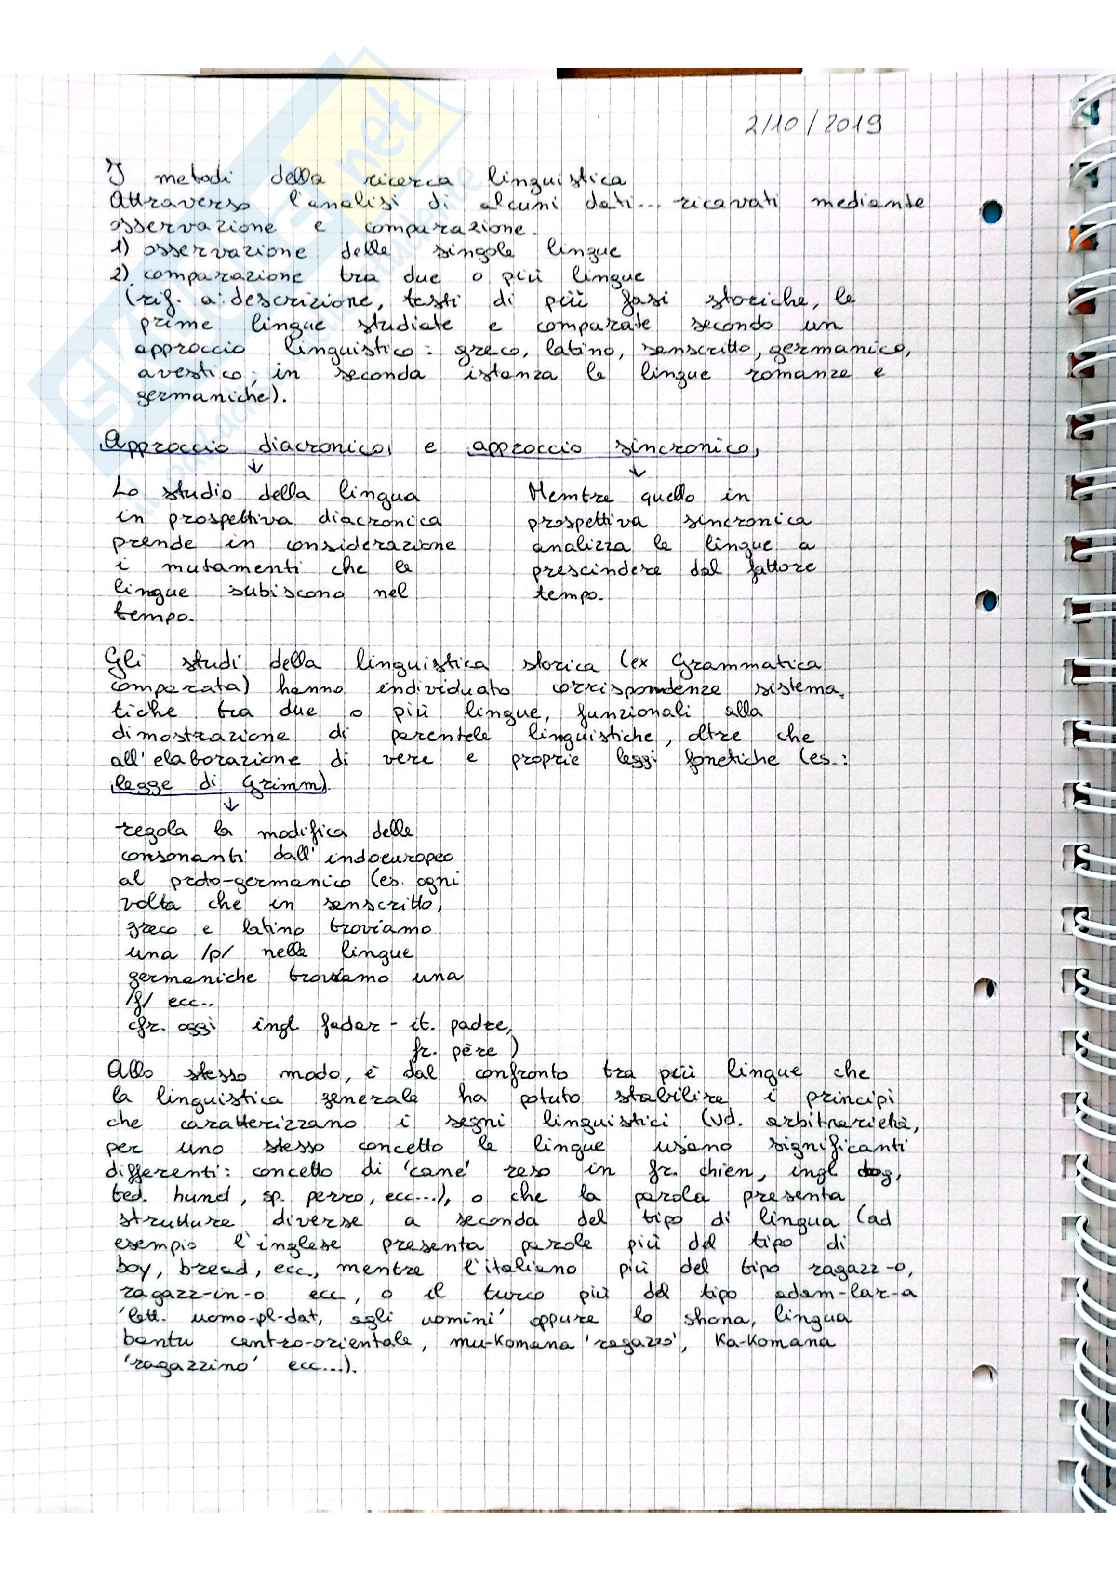 2/10/2019
I metodi della ricerca linguistica
Attraverso l'analisi di alcuni dati... ricavati mediante
osservazione e comparazione.
1) osservazione delle singole lingue
2) comparazione tra due o più lingue
(rif. a: descrizione, testi di più fasi storiche, le
prime lingue studiate e comparate secondo un
approccio linguistico: greco, latino, sanscritto, germanico,
avestico; in seconda istanza le lingue romanze e
germaniche).
Approccio diacronico e approccio sincronico
↓ ↓
Lo studio della lingua
in prospettiva diacronica
prende in considerazione
i mutamenti che le
lingue subiscono nel
tempo.
Mentre quello in
prospettiva sincronica
analizza le lingue a
prescindere dal fattore
tempo.
Gli studi della linguistica storica (ex Grammatica
comparata) hanno individuato corrispondenze sistema-
tiche tra due o più lingue, funzionali alla
dimostrazione di parentele linguistiche, oltre che
all'elaborazione di vere e proprie leggi fonetiche (es.:
legge di Grimm).
↓
regola la modifica delle
consonanti dall'indoeuropeo
al proto-germanico (es. ogni
volta che in sanscritto,
greco e latino troviamo
una /p/ nelle lingue
germaniche troviamo una
/f/ ecc..
cfr. oggi ingl fader - it. padre,
fr. père)
Allo stesso modo, è dal confronto tra più lingue che
la linguistica generale ha potuto stabilire i principi
che caratterizzano i segni linguistici (vd. arbitrarietà,
per uno stesso concetto le lingue usano significanti
differenti: concetto di 'cane' reso in fr. chien, ingl dog,
ted. hund, sp. perro, ecc...), o che la parola presenta
strutture diverse a seconda del tipo di lingua (ad
esempio l'inglese presenta parole più del tipo di
boy, bread, ecc., mentre l'italiano più del tipo ragazz-o,
ragazz-in-o ecc, o il turco più del tipo adam-lar-a
'lett. uomo-pl-dat, agli uomini' oppure lo shona, lingua
bantu centro-orientale, mu-komana 'ragazzo', Ka-komana
'ragazzino' ecc...).